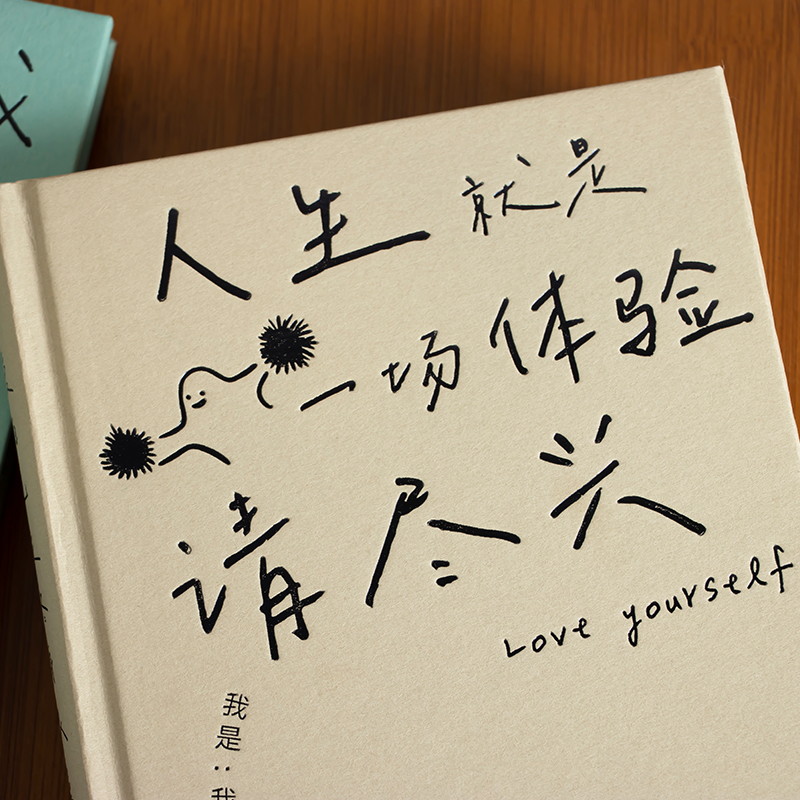 人生就是
一场体验
请尽兴
Love yourself
我是：我